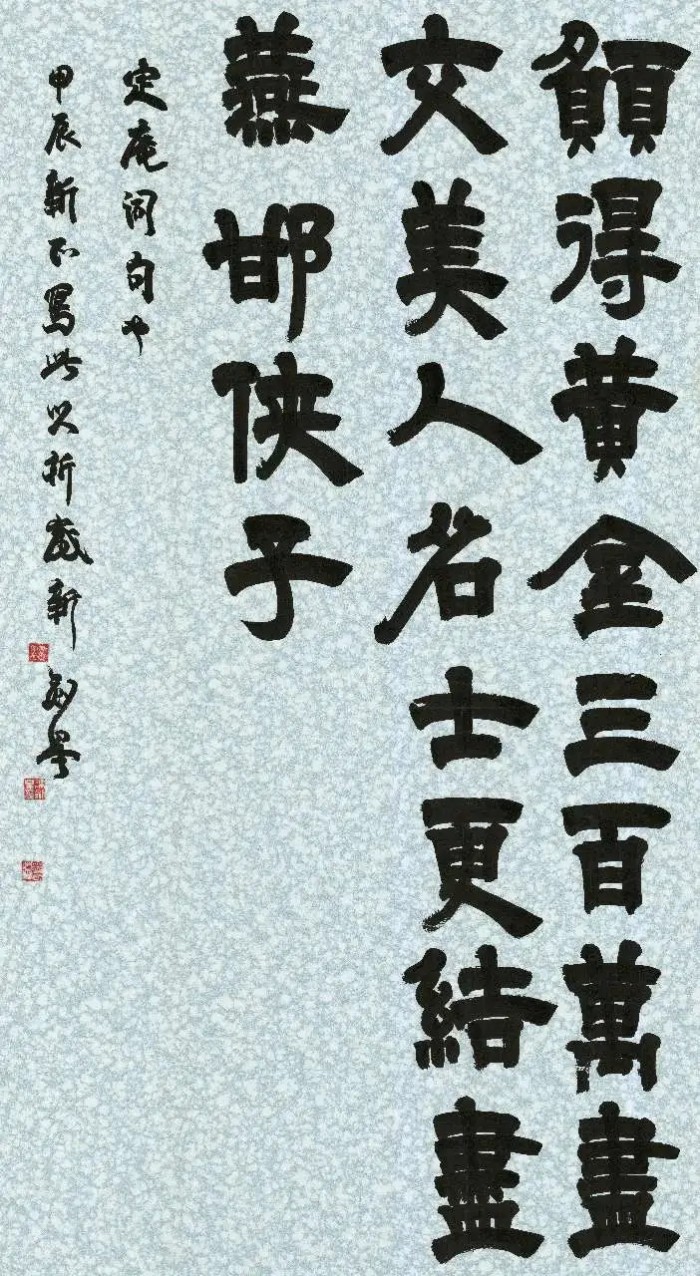 願得黃金三百萬盡
交美人名士更結盡
燕邯俠子
定庵詞句也
甲辰新正寫此以祈歲新